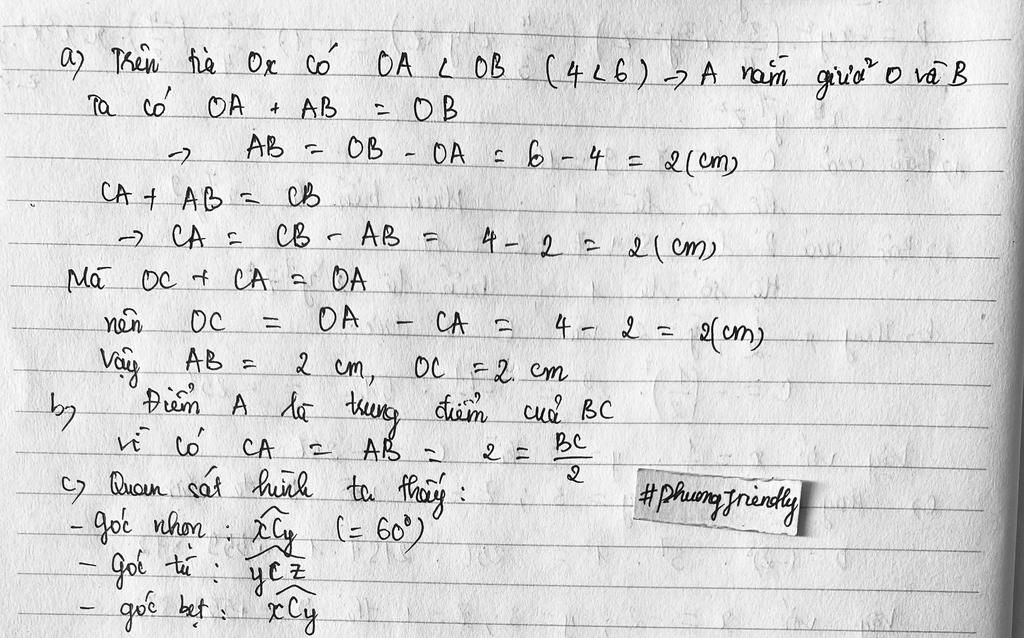 a) Trên tia Ox có OA < OB (4<6) → A nằm giữa O và B
Ta có OA + AB = OB
→ AB = OB - OA = 6 - 4 = 2(cm)
CA + AB = CB
→ CA = CB - AB = 4 - 2 = 2(cm)
Mà OC + CA = OA
nên OC = OA - CA = 4 - 2 = 2(cm)
Vậy AB = 2 cm, OC = 2 cm
b) Điểm A là trung điểm của BC
vì có CA = AB = 2 = BC/2
c) Quan sát hình ta thấy :
- góc nhọn : xCy (= 60°)
#phuongfriendly
- góc tù : yCz
- góc bẹt : xCy